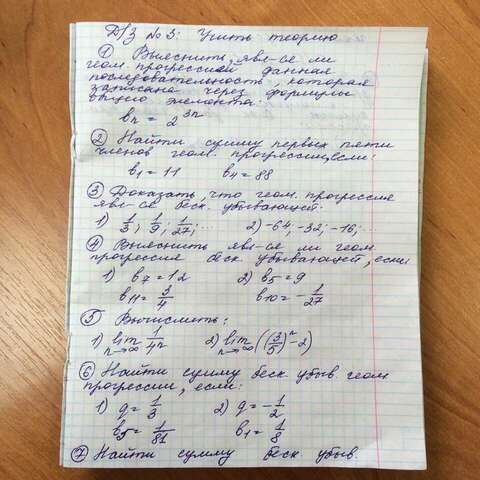 Д/З №3: Учить теорию
① Выяснить, явл-ся ли
геом. прогрессией данная
последовательность, которая
записана через формулу
общего элемента:
bₙ = 2³ⁿ
② Найти сумму первых пяти
членов геом. прогрессии, если:
b₁ = 11 b₄ = 88
③ Доказать, что геом. прогрессия
явл-ся беск. убывающей:
1) 1/3; 1/9; 1/27; ... 2) -64; -32; -16; ...
④ Выяснить явл-ся ли геом.
прогрессия беск. убывающей, если:
1) b₇ = 12 2) b₅ = 9
b₁₁ = 3/4 b₁₀ = -1/27
⑤ Вычислить:
1) lim n→∞ 1/4ⁿ 2) lim n→∞ ((3/5)ⁿ - 2)
⑥ Найти сумму беск. убыв. геом.
прогрессии, если:
1) q = 1/3 2) q = -1/2
b₅ = 1/81 b₁ = 1/8
⑦ Найти сумму беск. убыв.